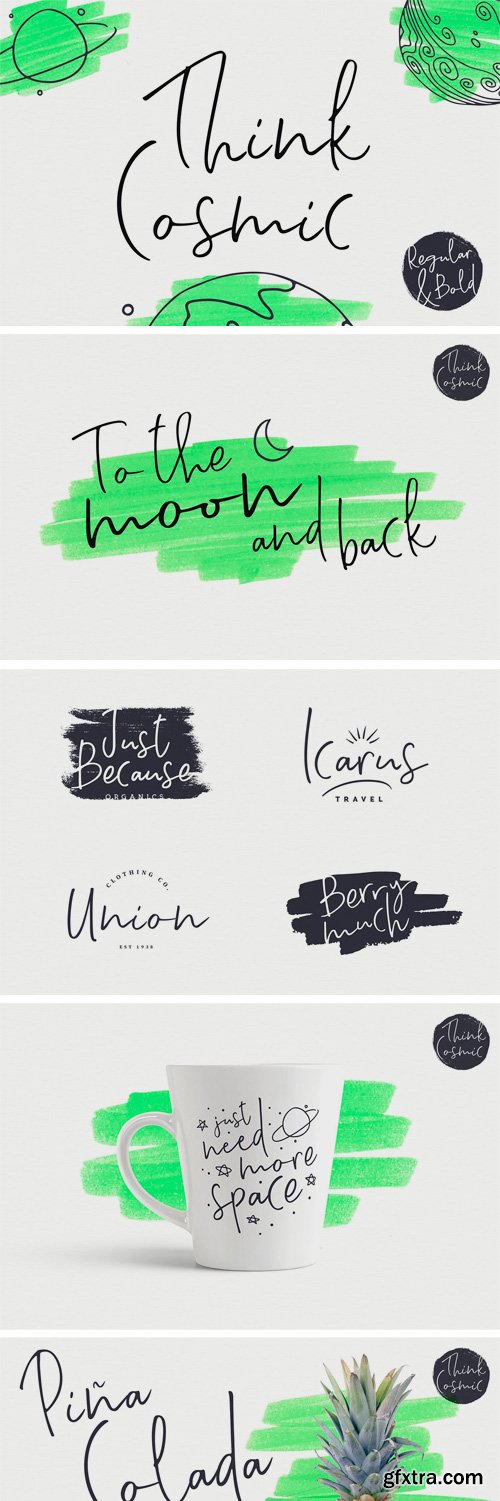 Think
Cosmic
Regular
& Bold
Think
Cosmic
To the
moon
and back
Just
Because
ORGANICS
Icarus
TRAVEL
CLOTHING CO.
Union
EST 1938
Berry
much
Think
Cosmic
just
need
more
space
Think
Cosmic
Piña
Colada
gfxtra.com